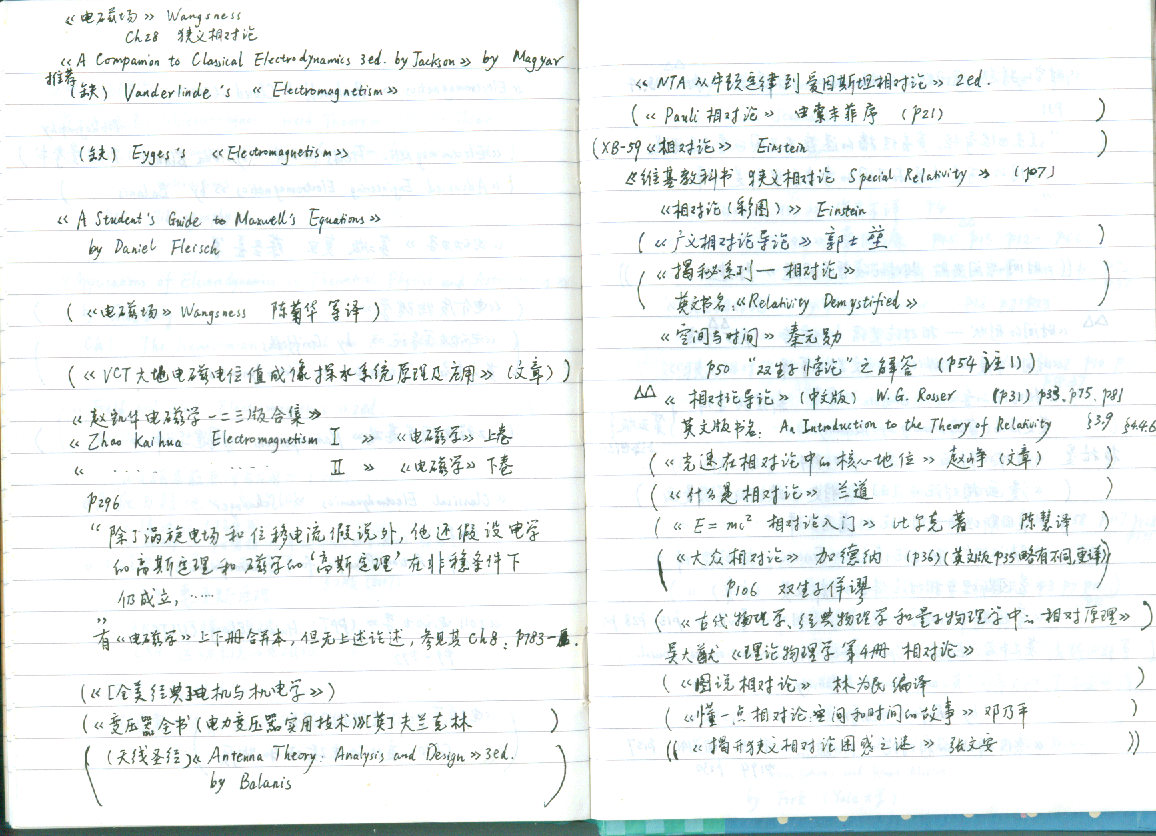 《电磁场》 Wangsness
Ch28 狭义相对论
《A Companion to Classical Electrodynamics 3ed. by Jackson》 by Magyar
推荐
(缺) Vanderlinde's 《Electromagnetism》
(缺) Eyges's 《Electromagnetism》
《A Student's Guide to Maxwell's Equations》
by Daniel Fleisch
(《电磁场》Wangsness 陈菊华 等译)
(《VCT大地电磁电位值成像探水系统原理及应用》(文章))
《赵凯华电磁学一二三版合集》
《Zhao Kaihua Electromagnetism I 》 《电磁学》上卷
《 ..... ..... II 》 《电磁学》下卷
P296
“除了涡旋电场和位移电流假说外,他还假设电学
的高斯定理和磁学的‘高斯定理’在非稳条件下
仍成立,……
”
有《电磁学》上下册合并本,但无上述论述,参见其Ch8, P783-
(《[全美经典]电机与机电学》)
(《变压器全书(电力变压器实用技术)》[英]夫兰克林 )
((天线圣经)《Antenna Theory: Analysis and Design》3ed.
by Balanis )
《NTA从牛顿定律到爱因斯坦相对论》2ed.
(《Pauli相对论》 中索末菲序 (P21) )
(XB-59《相对论》 Einstein )
《维基教科书 狭义相对论 Special Relativity》 (P07)
《相对论(彩图)》 Einstein
(《广义相对论导论》郭士堃 )
(《揭秘系列—相对论》
英文书名:《Relativity Demystified》 )
《空间与时间》秦元勋
P50 “双生子悖论”之解答 (P54 注1)
△△《相对论导论》(中文版) W.G. Rosser (P31) P33, P75, P81
英文版书名: An Introduction to the Theory of Relativity §3.9 §4.4.6
(《光速在相对论中的核心地位》赵峥(文章) )
(《什么是相对论》兰道 )
(《E=mc² 相对论入门》比尔克著 陈慧译 )
(《大众相对论》加德纳 (P36)(英文版P35略有不同,更详)
P106 双生子佯谬 )
(《古代物理学、经典物理学和量子物理学中的相对原理》)
吴大猷《理论物理学第4册 相对论》
(《图说相对论》 林为民编译 )
(《懂一点相对论:空间和时间的故事》邓乃平 )
((《揭开狭义相对论困惑之谜》张文安 ))